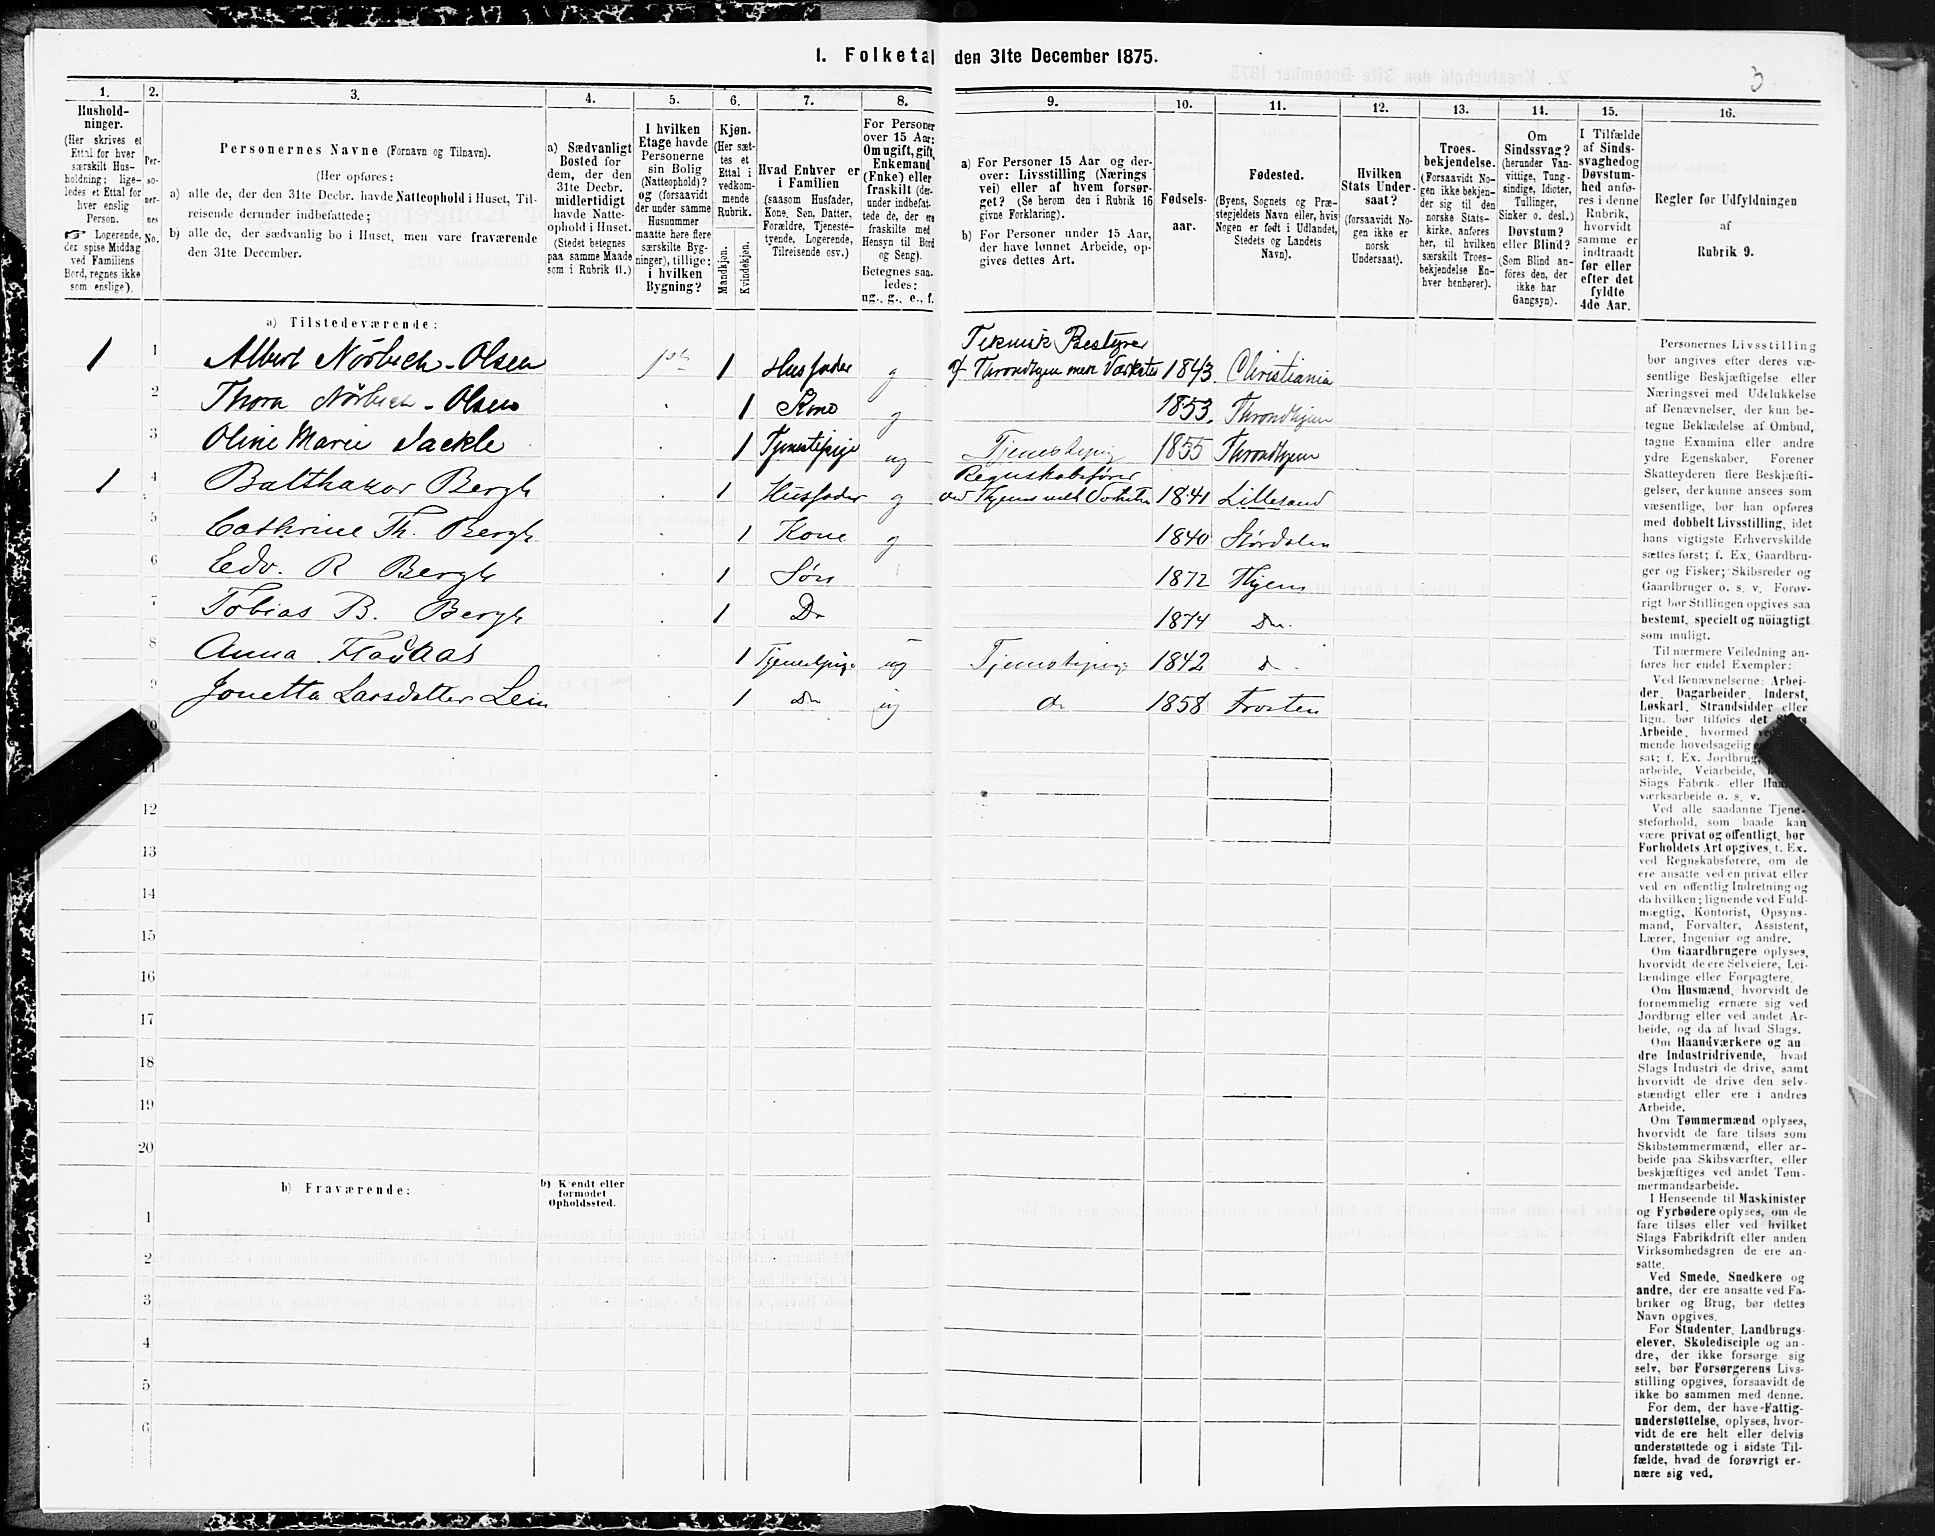 1. Folketal den 31te December 1875.
3.
1. 2. 3. 4. 5. 6. 7. 8. 9. 10. 11. 12. 13. 14. 15. 16.
Hushold-
ninger.
(Her skrives et
Ettal for hver
særskilt Hus-
holdning; lige-
ledes et Ettal for
hver enslig
Person.
☞ Logerende,
der spise Middag
ved Familiens
Bord, regnes ikke
som enslige).
Per-
so-
ner-
nes
No.
Personernes Navne (Fornavn og Tilnavn).
(Her opføres:
a) alle de, der den 31te Decbr. havde Natteophold i Huset, Til-
reisende derunder indbefattede;
b) alle de, der sædvanlig bo i Huset, men vare fraværende
den 31te December.
a) Sædvanligt
Bosted for
dem, der den
31te Decbr.
midlertidigt
havde Natte-
ophold i Huset.
(Stedet betegnes
paa samme Maade
som i Rubrik 11.)
I hvilken
Etage havde
Personerne
sin Bolig
(Natteophold)?
og (forsaavidt
der under samme
Husnummer
maatte høre flere
særskilte Byg-
ninger), tillige:
i hvilken
Bygning?
Kjøn.
(Her sæt-
tes et
Ettal i
vedkom-
mende
Rubrik.
Mandkjøn.
Kvindekjøn.
Hvad Enhver er
i Familien
(saasom Husfader,
Kone, Søn, Datter,
Forældre, Tjeneste-
tyende, Logerende,
Tilreisende osv.)
For Personer
over 15 Aar:
Om ugift, gift,
Enkemand
(Enke) eller
fraskilt (der-
under indbefat-
tede de, der ere
fraskilte med
Hensyn til Bord
og Seng).
Betegnes saa-
ledes:
ug., g., e., f.
a) For Personer 15 Aar og der-
over: Livsstilling (Nærings
vei) eller af hvem forsør-
get? (Se herom den i Rubrik 16
givne Forklaring).
b) For Personer under 15 Aar,
der have lønnet Arbeide, op-
gives dettes Art.
Fødsels-
aar.
Fødested.
(Byens, Sognets og Præ-
stegjeldets Navn eller, hvis
Nogen er født i Udlandet,
Stedets og Landets
Navn).
Hvilken
Stats Under-
saat?
(forsaavidt No-
gen ikke er
norsk
Undersaat).
Troes-
bekjendelse.
(Forsaavidt No-
gen ikke bekjen-
der sig til den
norske Stats-
kirke, anføres
her, til hvilken
særskilt Troes-
bekjendelse En-
hver henhører).
Om
Sindssvag?
(herunder Van-
vittige, Tung-
sindige, Idioter,
Tullinger,
Sinker o. desl.)
Døvstum?
eller Blind?
(Som Blind an-
føres den, der
ikke har
Gangsyn).
I Tilfælde
af Sinds-
svaghed og
Døvstum-
hed anfø-
res i denne
Rubrik,
hvorvidt
samme er
indtraadt
før eller
efter det
fyldte
4de Aar.
Regler før Udfyldningen
af
Rubrik 9.
a) Tilstedeværende:
1 1 Albert Nørbech-Olsen 1ste 1 Husfader g Teknisk Bestyrer
af Throndhjem mek Værksted 1843. Christiania
2 Thora Nørbech-Olsen 1 Kone g 1853. Throndhjem
3 Oline Marie Jackle 1 Tjenestepige ug Tjenestepige 1855 Throndhjem
1 4 Balthazar Bergh 1 Husfader g Regnskabsfører
ved Thjems mek Værksted 1841 Lillesand
5 Cathrine Th. Bergh 1 Kone g 1840 Størdalen
6 Edv. R Bergh 1 Søn 1872 Thjem
7 Tobias B. Bergh 1 Do 1874 Do.
8 Anna 1 Tjenestpige ug Tjenestepige 1842 Do
9 Jonetta Larsdatter Lein 1 Do ug do 1858 Frosten
10
11
12
13
14
15
16
17
18
19
20
b) Fraværende:
b) Kjendt eller
formodet
Opholdssted.
1
2
3
4
5
6
Personernes Livsstilling
bør angives efter deres væ-
sentlige Beskjæftigelse eller
Næringsvei med Udelukkelse
af Benævnelser, der kun be-
tegne Beklædelse af Ombud,
tagne Examina eller andre
ydre Egenskaber. Forener
Skatteyderen flere Beskjæfti-
gelser, der kunne ansees som
væsentlige, bør han opføres
med dobbelt Livsstilling, idet
hans vigtigste Erhvervskilde
sættes først; f. Ex. Gaardbru-
ger og Fisker; Skibsreder og
Gaardbruger o. s. v. Forøv-
rigt bør Stillingen opgives saa
bestemt, specielt og nöiagtigt
som muligt.
Til nærmere Veiledning an-
føres her endel Exempler:
Ved Benævnelserne: Arbei-
der, Dagarbeider, Inderst,
Løskarl, Strandsidder eller
lign. bør tilføies det Slags
Arbeide, hvormed
mende hovedsagelig
sat; f. Ex. Jordbrug,
arbeide, Veiarbeide,
Slags Fabrik- eller
værksarbeide o. s. v.
Ved alle saadanne Tjene-
steforhold, som baade kan
være privat og offentligt, bør
Forholdets Art opgives, f. Ex.
ved Regnskabsførere, om de
ere ansatte ved en privat eller
ved en offentlig Indretning og
da hvilken; lignende ved Fuld-
mægtig, Kontorist, Opsyns-
mand, Forvalter, Assistent,
Lærer, Ingeniør og andre.
Om Gaardbrugere oplyses,
hvorvidt de ere Selveiere, Lei-
lændinge eller Forpagtere.
Om Husmænd, hvorvidt de
fornemmelig ernære sig ved
Jordbrug eller ved andet Ar-
beide, og da af hvad Slags.
Om Haandværkere og an-
dre Industridrivende, hvad
Slags Industri de drive, samt
hvorvidt de drive den selv-
stændigt eller ere i andres
Arbeide.
Om Tømmermænd oplyses,
hvorvidt de fare tilsøs som
Skibstømmermænd, eller ar-
beide paa Skibsværfter, eller
beskjæftiges ved andet Tøm-
mermandsarbeide.
I Henseende til Maskinister
og Fyrbødere oplyses, om de
fare tilsøs eller ved hvilket
Slags Fabrikdrift eller anden
Virksomhedsgren de ere an-
satte.
Ved Smede, Snedkere og
andre, der ere ansatte ved Fa-
briker og Brug, bør dettes
Navn opgives.
For Studenter, Landbrugs-
elever, Skoledisciple og an-
dre, der ikke forsørge sig
selv, bør Forsørgerens Livs-
stilling opgives, forsaavidt de
ikke bo sammen med denne.
For dem, der have Fattig-
understøttelse, oplyses, hvor-
vidt de ere helt eller delvis
understøttede og i sidste Til-
fælde, hvad de forøvrigt er-
nære sig ved.